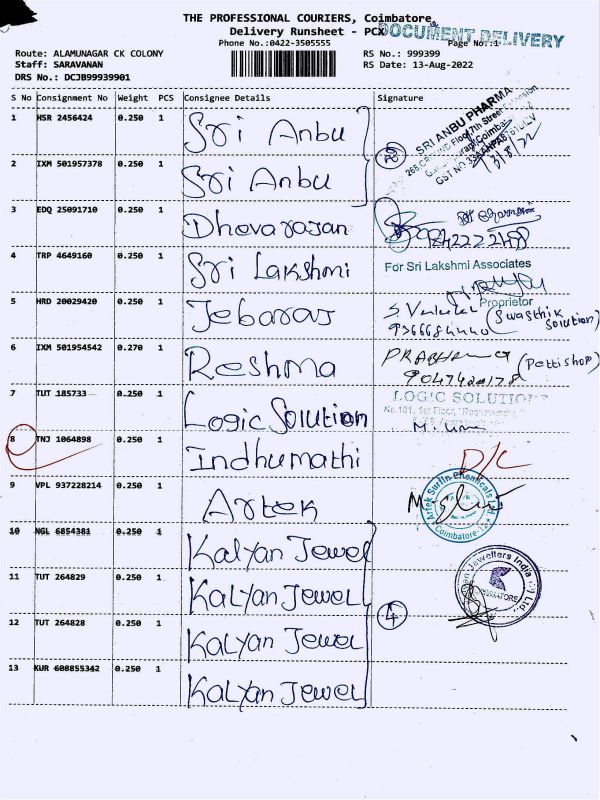 THE PROFESSIONAL COURIERS, Coimbatore
Delivery Runsheet - PCX
DOCUMENT DELIVERY
Phone No.:0422-3505555
Page No.:1
Route: ALAMUNAGAR CK COLONY
RS No.: 999399
Staff: SARAVANAN
RS Date: 13-Aug-2022
DRS No.: DCJB99939901
S No Consignment No Weight PCS Consignee Details Signature
1 HSR 2456424 0.250 1 Sri Anbu
SRI ANBU PHARMA
13/8/22
2
2 IXM 501957378 0.250 1 Sri Anbu
3 EDQ 25091710 0.250 1 Dhevarajan
4 TRP 4649160 0.250 1 Sri Lakshmi For Sri Lakshmi Associates
Proprietor
5 HRD 20029420 0.250 1 Jebaraj (Swasthik Solution)
6 IXM 501954542 0.270 1 Reshma (Petti shop)
7 TUT 185733 0.250 1 Logic Solution LOGIC SOLUTION
No.101, 1st Floor,
8 TNJ 1064898 0.250 1 Indhumathi D/C
9 VPL 937228214 0.250 1 Artek
Artek Surfin Chemicals Ltd
Coimbatore-12
10 NGL 6854381 0.250 1 Kalyan Jewel
11 TUT 264829 0.250 1 Kalyan Jewel
Jewellers India
12 TUT 264828 0.250 1 Kalyan Jewel
4
13 KUR 608855342 0.250 1 Kalyan Jewel